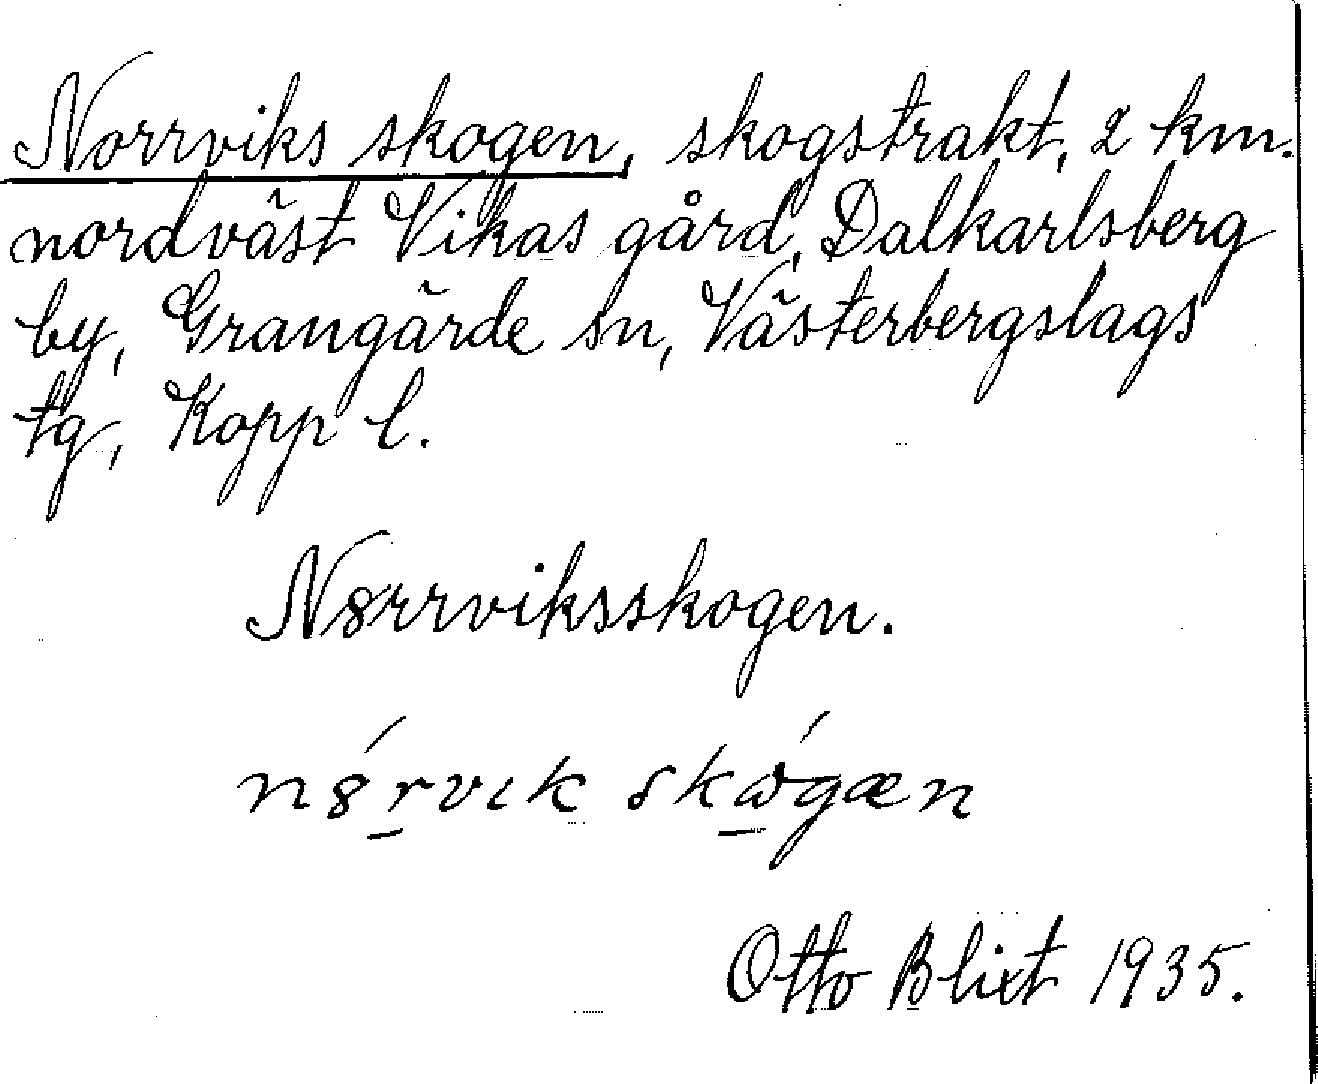 Norrviks skogen, skogstrakt, 2 km.
nordväst Vikas gård, Dalkarlsberg
by, Grangärde sn, Västerbergslags
tg, Kopp l.
N8rrviksskogen.
n8́r̲vık skώ̲gæn
Otto Blixt 1935.